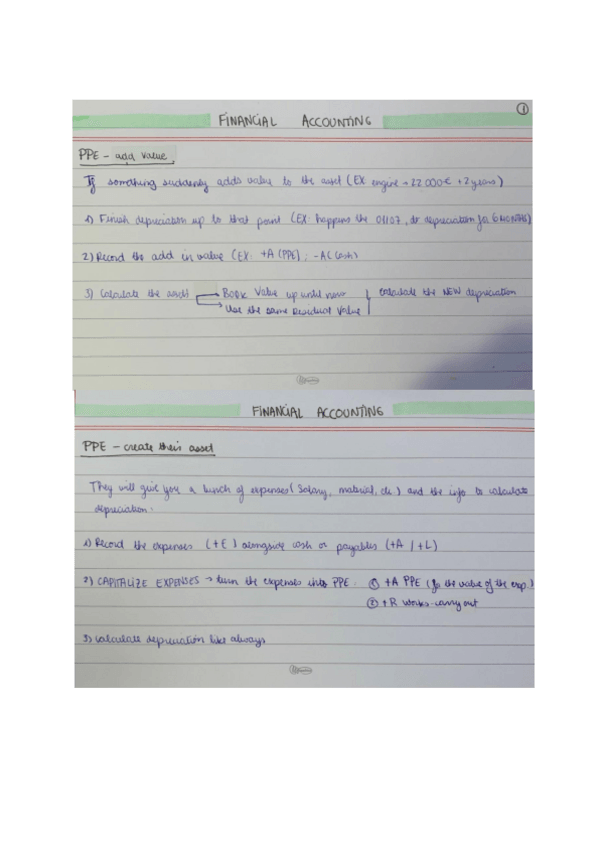 1
FINANCIAL ACCOUNTING
PPE - add value
If something suddenly adds value to the asset (EX: engine → 22 000€ + 2 years)
1) Finish depreciation up to that point (EX: happens the 01/07, do depreciation for 6 MONTHS)
2) Record the add in value (EX: +A (PPE) ; -A (cash)
3) Calculate the → Book Value up until now calculate the NEW depreciation
→ Use the same Residual Value
FINANCIAL ACCOUNTING
PPE - create their asset
They will give you a bunch of expenses (Salary, material, etc.) and the info to calculate
depreciation.
1) Record the expenses (+E) alongside cash or payables (+A / +L)
2) CAPITALIZE EXPENSES → turn the expenses into PPE: ① +A PPE (for the value of the exp.)
② +R works carry out
3) Calculate depreciation like always